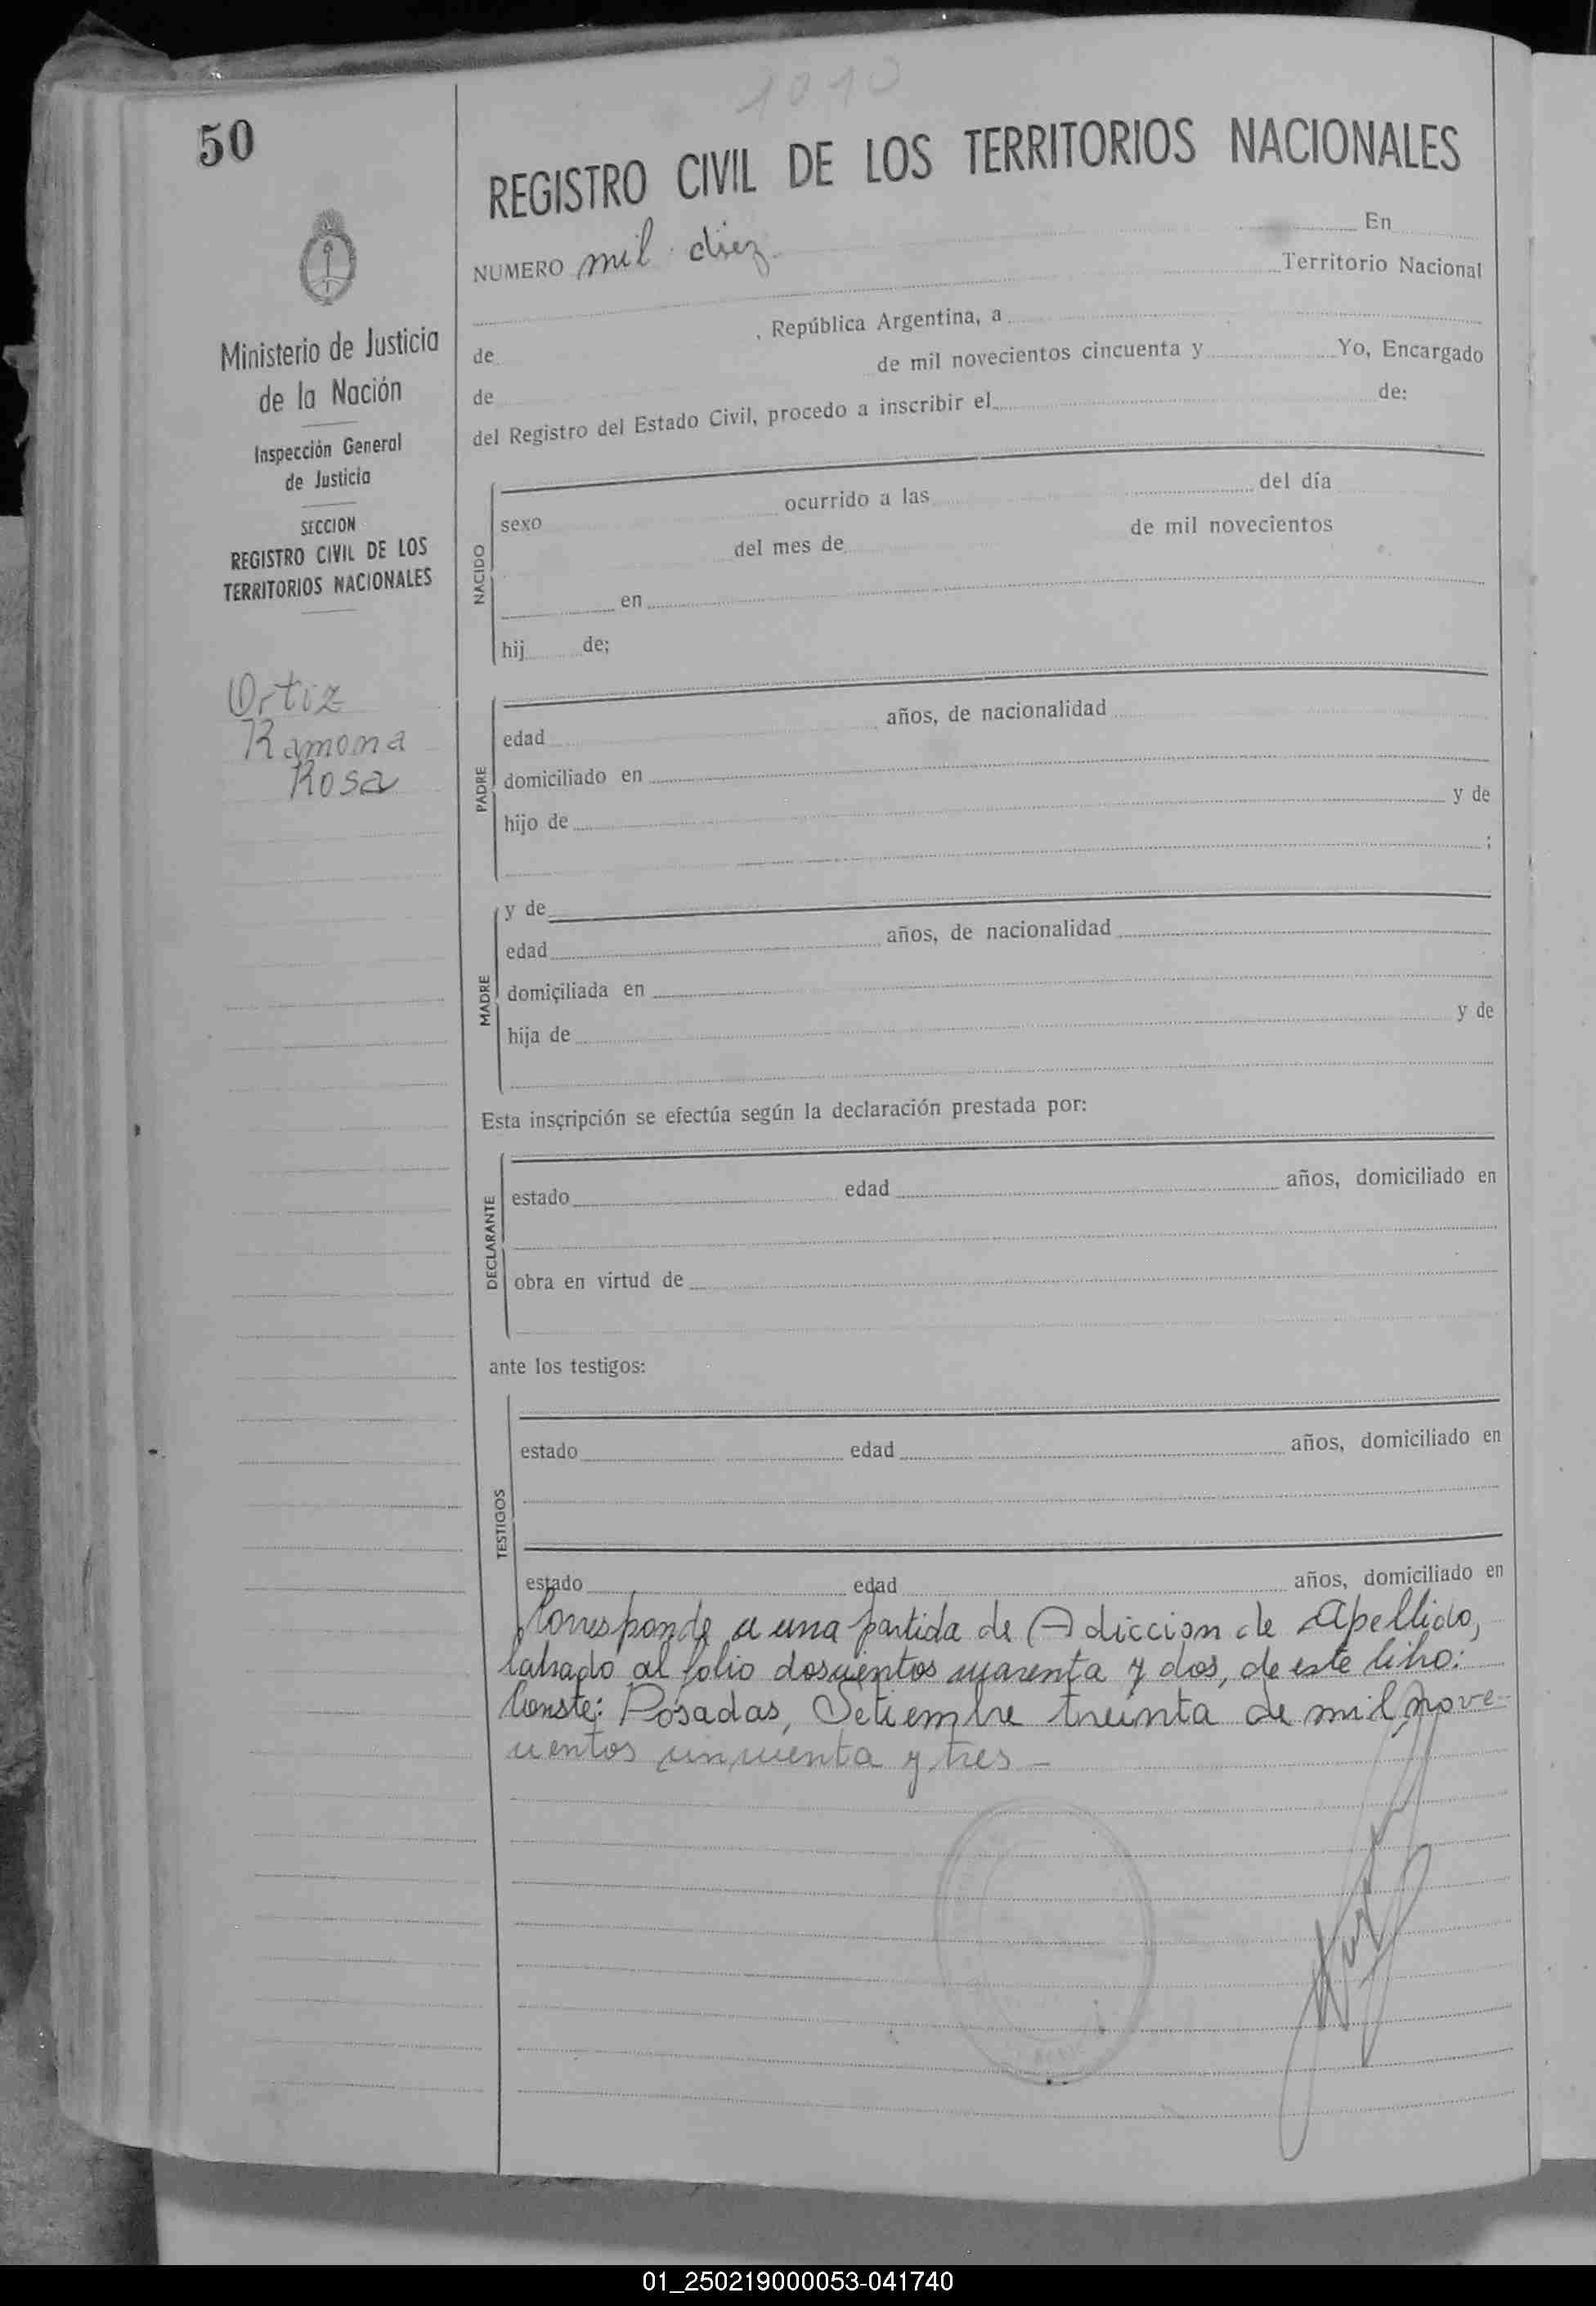 1010
50
REGISTRO CIVIL DE LOS TERRITORIOS NACIONALES
NUMERO mil diez En
Territorio Nacional
de , República Argentina, a
de de mil novecientos cincuenta y Yo, Encargado
del Registro del Estado Civil, procedo a inscribir el de:
Ministerio de Justicia
de la Nación
Inspección General
de Justicia
SECCION
REGISTRO CIVIL DE LOS
TERRITORIOS NACIONALES
Ortiz
Ramona
Rosa
NACIDO
sexo ocurrido a las del día
del mes de de mil novecientos
en
hij de;
PADRE
edad años, de nacionalidad
domiciliado en
hijo de y de
;
MADRE
y de
edad años, de nacionalidad
domiciliada en
hija de y de
Esta inscripción se efectúa según la declaración prestada por:
DECLARANTE
estado edad años, domiciliado en
obra en virtud de
ante los testigos:
TESTIGOS
estado edad años, domiciliado en
estado edad años, domiciliado en
Corresponde a una partida de Adiccion de Apellido,
labrado al folio doscientos cuarenta y dos, de este libro:
Conste: Posadas, Setiembre treinta de mil nove
cientos cincuenta y tres —
01_250219000053-041740